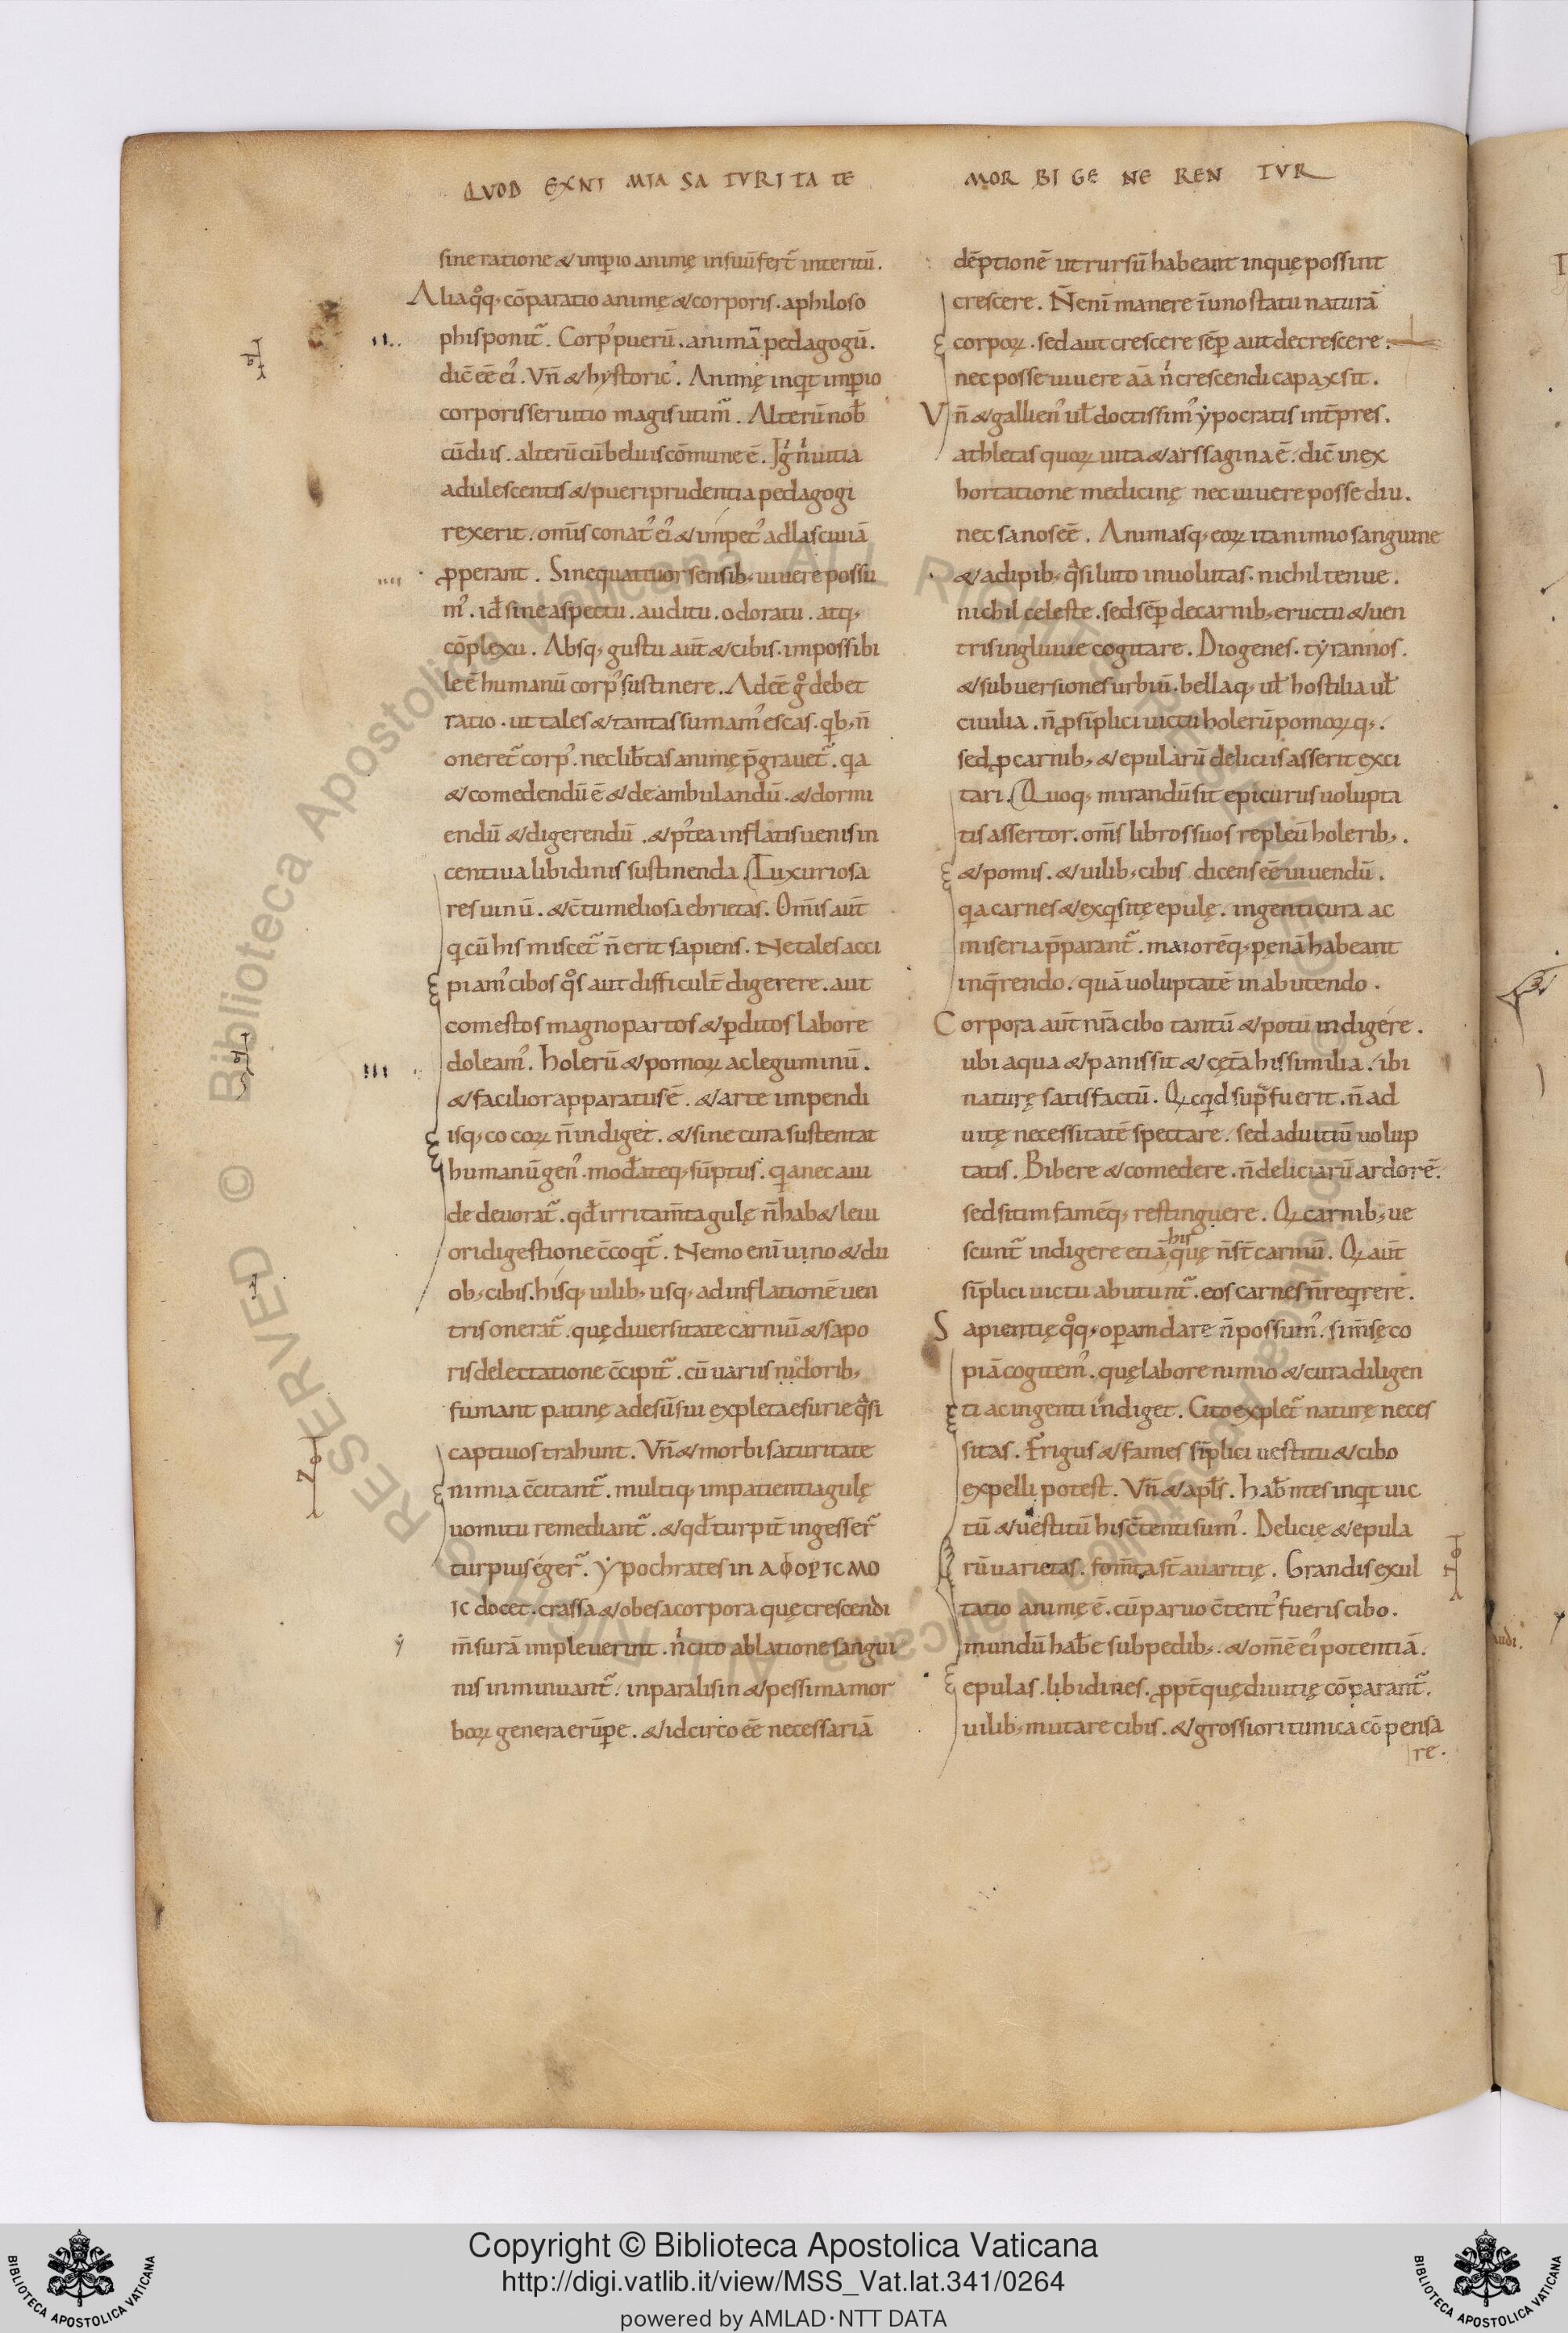 QUOD EXNIMIA SATURITATE MORBI GENERENTUR
sine ratione & imꝑio animę insuũ fert᷑ interitũ.
Alia qͦq; cõparatio animę & corporis. aphiloso
phis ponit᷑. Corpꝰ puerũ. animã pedagogũ.
dic̃ eẽ eiꝰ. Vñ & hystoricꝰ. Animę inqͥt imꝑio
corporis seruitio magis utim᷑. Alterũ nob̃
cũ diis. alterũ cũ beluis cõmune ẽ. Igͥ nͥ uitia
adulescentis & pueri prudentia pedagogi
rexerit. om̃is conatꝰ eiꝰ & impetꝰ ad lasciuiã
ꝓperant. Sine quattuor sensib; uiuere possu
mꝰ. id̃ sine aspectu. auditu. odoratu. atq;
cõplexu. Absq; gustu aut̃ & cibis. impossibi
le ẽ humanũ corpꝰ sustinere. Adeẽ gͦ debet
ratio. ut tales & tantas sumamꝰ escas. qͥb; ñ
oneret᷑ corpꝰ. nec lib̃tas animę p̃grauet᷑. qͥa
& comedendũ ẽ & deambulandũ. & dormi
endũ & digerendũ. & pꝰtea inflatis uenis in
centiua libidinis sustinenda. Luxuriosa
res uinũ. & c̃tumeliosa ebrietas. Om̃is aut̃
qͥ cũ his miscet᷑ ñ erit sapiens. Ne tales acci
piamꝰ cibos qͦs aut difficult̃ digerere. aut
comestos magno partos & ꝑditos labore
doleamꝰ. Holerũ & pomoꝝ ac leguminũ.
& facilior apparatus ẽ. & arte impendi
isq; cocoꝝ ñ indiget. & sine cura sustentat
humanũ genꝰ. mod̃ateq; sũptus. qͥa nec aui
de deuorat᷑. qd̃ irritam̃ta gulę ñ hab& leui
ori digestione c̃coqͥt᷑. Nemo enĩ uino & du
ob; cibis. hisq; uilib; usq; ad inflationẽ uen
tris onerat᷑. quę diuersitate carniũ & sapo
ris delectatione c̃cipit᷑. cũ uariis nidorib;
fumant patinę ad esũ sui expleta esurie qͣsi
captiuos trahunt. Vñ & morbi saturitate
nimia c̃citant᷑. multiq; impatientia gulę
uomitu remediant᷑. & qd̃ turpit̃ ingesser᷑
turpius éger᷑. Ypochrates in ΑΦΟΡΙCΜΟ
IC docet. crassa & obesa corpora quę crescendi
m̃surã impleuerint. nͥ cito ablatione sangui
nis inminuant᷑. in paralisin & pessima mor
boꝝ genera erũꝑe. & idcirco eẽ necessariã
dẽptionẽ ut rursũ habeant inquę possint
crescere. Ñ enĩ manere ĩ uno statu naturã
corpoꝝ. sed aut crescere sẽꝑ aut decrescere.
nec posse uiuere aã nͥ crescendi capax sit.
Vñ & gallienꝰ ul̃ doctissimꝰ ypocratis int̃pres.
athletas quoꝝ uita & ars sagina ẽ. dic̃ in ex
hortatione medicinę nec uiuere posse diu.
nec sanos eẽ. Animasq; eoꝝ ita nimio sanguine
& adipib; qͣsi luto inuolutas. nichil tenue.
nichil celeste. sed sẽꝑ de carnib; eructu & uen
tris ingluuie cogitare. Diogenes. tyrannos.
& subuersiones urbiũ. bellaq; ul̃ hostilia ul̃
ciuilia. ñ ꝓ sĩplici uictu holerũ pomoꝝq;.
sed ꝓ carnib; & epularũ deliciis asserit exci
tari. Quoq; mirandũ sit epicurus uolupta
tis assertor. om̃s libros suos repleũ holerib;.
& pomis. & uilib; cibis dicens eẽ uiuendũ.
qͥa carnes & exqͥsitę epulę. ingenti cura ac
miseria p̃parant᷑. maiorẽq; penã habeant
inqͥrendo. quã uoluptatẽ in abutendo.
Corpora aut̃ nr̃a cibo tantũ & potu indigere.
ubi aqua & panis sit & cęt̃a his similia. ibi
naturę satisfactũ. Qͥcqͥd sup̃fuerit. ñ ad
uitę necessitatẽ spectare. sed ad uitiũ uolup
tatis. Bibere & comedere. ñ deliciarũ ardorẽ.
sed sitim famẽq; restinguere. Qͥ carnib; ue
scunt᷑ indigere etiã his quę ñ st̃ carniũ. Qͥ aut̃
sĩplici uictu abutunt᷑. eos carnes ñ reqͥrere.
Sapientię qͦq; oꝑam dare ñ possumꝰ. si m̃sę co
piã cogitemꝰ. quę labore nimio & cura diligen
ti ac ingenti indiget. Cito explet᷑ naturę neces
sitas. Frigus & fames sĩplici uestitu & cibo
expelli potest. Vñ & apl̃s. Hab̃ntes inqͥt uic
tũ & uestitũ his c̃tenti sumꝰ. Delicię & epula
rũ uarietas. fom̃ta st̃ auaritię. Grandis exul
tatio animę ẽ. cũ paruo c̃tentꝰ fueris cibo.
mundũ hab̃e sub pedib;. & om̃ẽ eiꝰ potentiã.
epulas. libidines. ꝓpt̃ quę diuitię cõparant᷑.
uilib; mutare cibis. & grossiori tunica cõpensa
re.
Copyright © Biblioteca Apostolica Vaticana
http://digi.vatlib.it/view/MSS_Vat.lat.341/0264
powered by AMLAD·NTT DATA